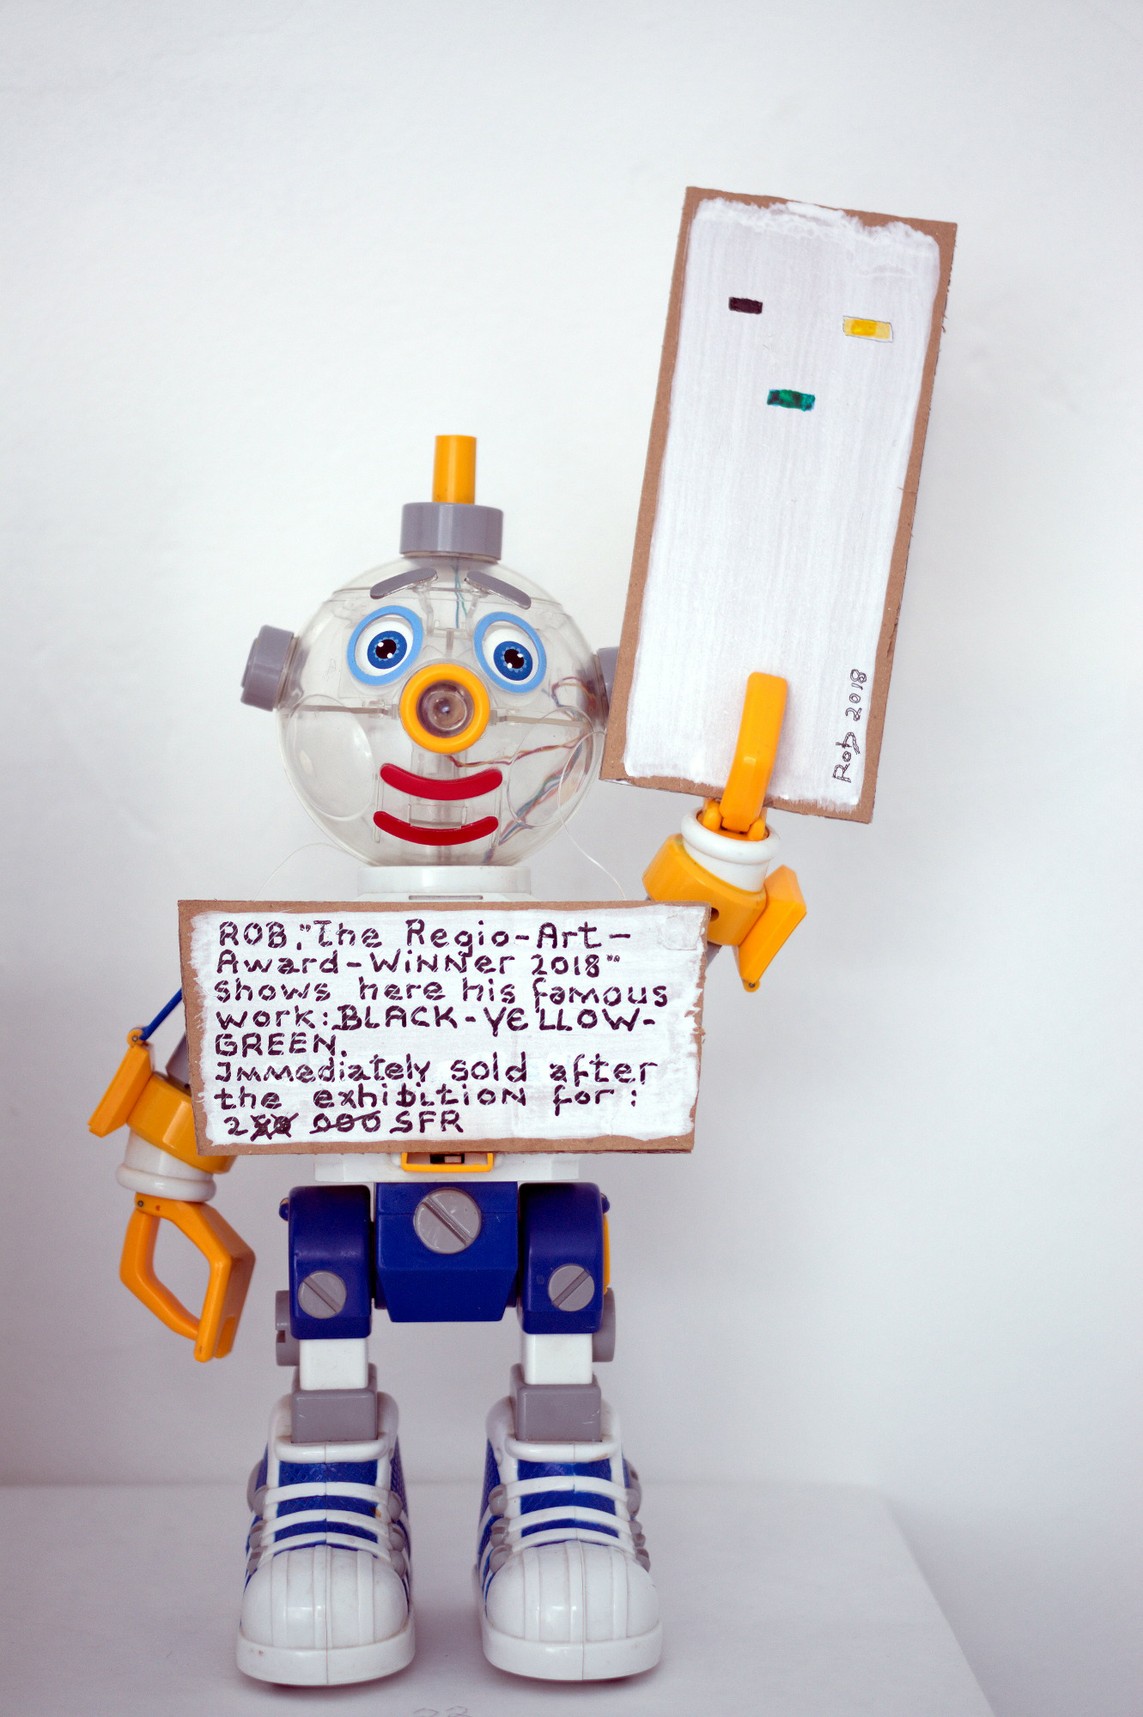 Rob 2018
ROB,"The Regio-Art-
Award-Winner 2018"
shows here his famous
work: BLACK-YELLOW-
GREEN.
Immediately sold after
the exhibition for:
2 000 SFR